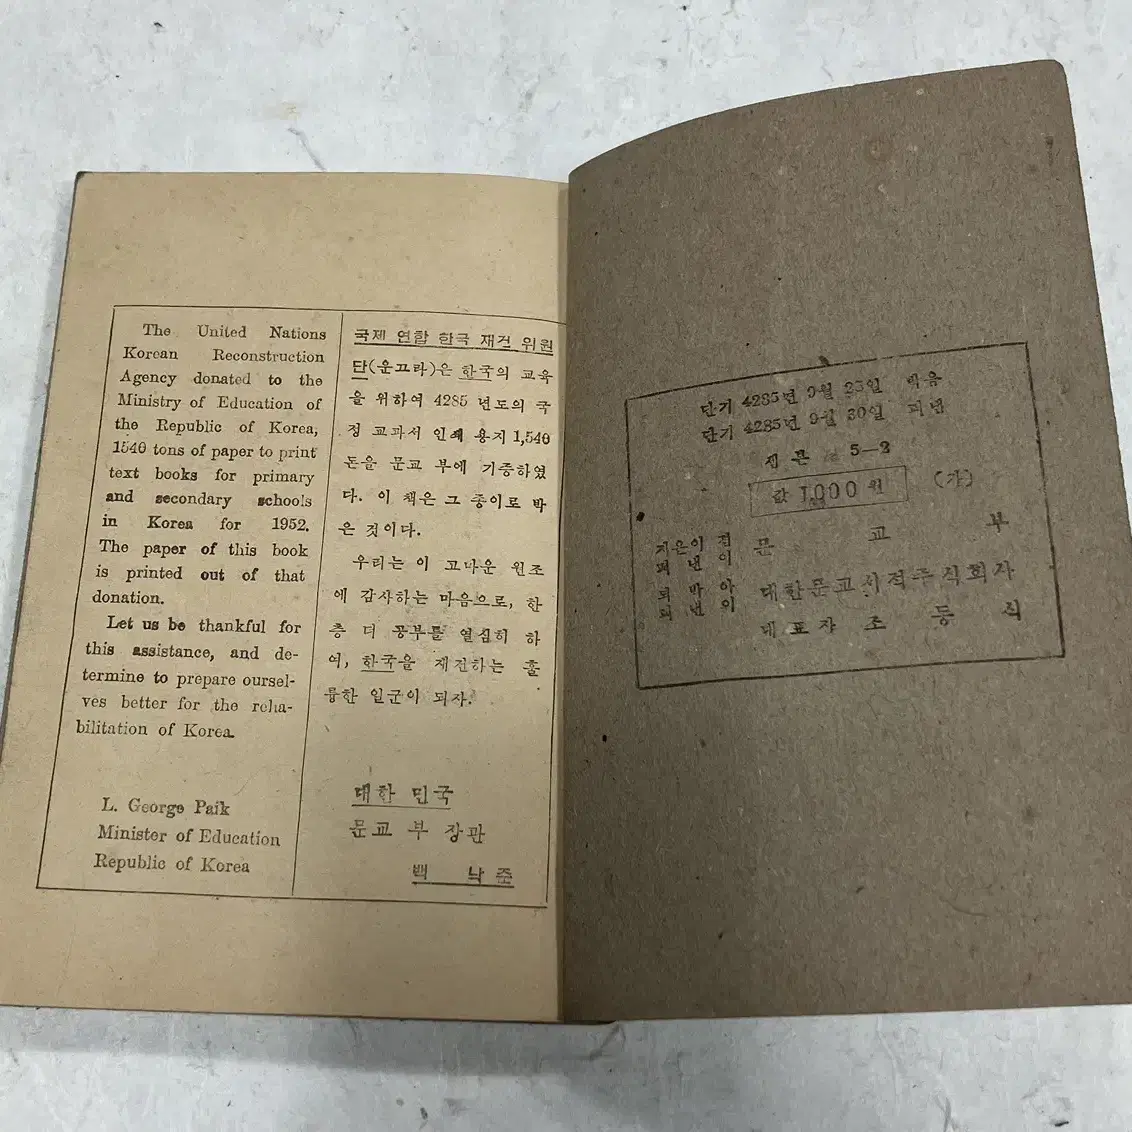 The United Nations
Korean Reconstruction
Agency donated to the
Ministry of Education of
the Republic of Korea,
1540 tons of paper to print
text books for primary
and secondary schools
in Korea for 1952.
The paper of this book
is printed out of that
donation.
Let us be thankful for
this assistance, and de-
termine to prepare oursel-
ves better for the reha-
bilitation of Korea.
L. George Paik
Minister of Education
Republic of Korea
국제 연합 한국 재건 위원
단(운끄라)은 한국의 교육
을 위하여 4285 년도의 국
정 교과서 인쇄 용지 1,540
톤을 문교 부에 기증하였
다. 이 책은 그 종이로 박
은 것이다.
우리는 이 고마운 원조
에 감사하는 마음으로, 한
층 더 공부를 열심히 하
여, 한국을 재건하는 훌
륭한 일군이 되자.
대한 민국
문교 부 장관
백 낙 준
단기 4285년 9월 25일 박음
단기 4285년 9월 30일 펴냄
5—2
값 1,000 원 (가)
지은이 겸
펴 낸 이
문 교 부
박 아
펴 낸 이
대한문교서적주식회사
대표자 조 동 식